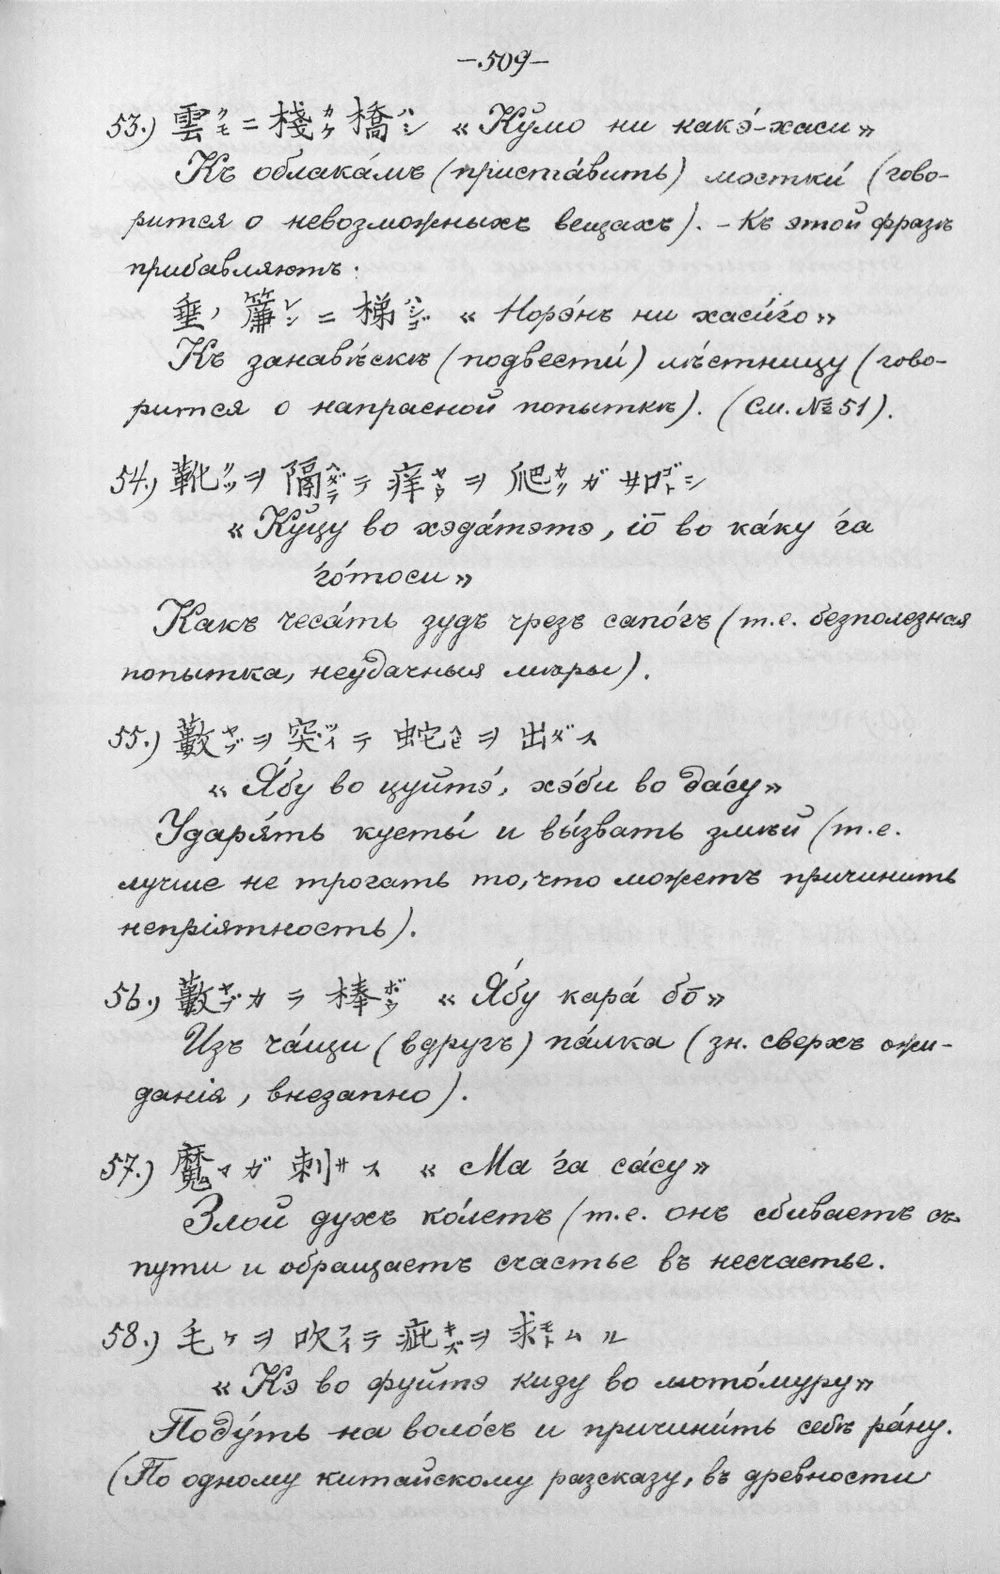 —509—
53.) 雲クモニ棧カケ橋ハシ « Ку́мо ни какэ́-хаси »
Къ облака́мъ (приста́вить) мостки́ (гово-
рится о невозможныхъ вещахъ). – Къ этой фразѣ
прибавляютъ:
垂ノ簾レンニ梯ハシゴ « Норэ́нъ ни хаси́го »
Къ занавѣ́скѣ (подвести́) лѣ́стницу (гово-
рится о напрасной попыткѣ). (См. № 51).
54.) 靴クツヲ隔ヘダテテ痒ヤウヲ爬カクガ如ゴトシ
« Ку́цу во хэда́тэтэ, іо̄ во ка́ку 'га
'го́тоси »
Какъ чеса́ть зудъ чрезъ сапо́гъ (т.е. безполезная
попытка, неудачныя мѣры).
55.) 藪ヤブヲ突ツイテ蛇ヘビヲ出ダス
« Я́бу во цуйтэ́, хэ́би во да́су »
Ударя́ть кусты́ и вы́звать змѣ́й (т.е.
лучше не трогать то, что можетъ причинить
непріятность).
56.) 藪ヤブカラ棒ボウ « Я́бу кара́ бо̄ »
Изъ ча́щи (вдругъ) па́лка (зн. сверхъ ожи-
данія, внезапно).
57.) 魔マガ刺サス « Ма 'га са́су »
Злой духъ ко́летъ (т.е. онъ сбиваетъ съ
пути и обращаетъ счастье въ несчастье.
58.) 毛ケヲ吹フイテ疵キズヲ求モトムル
« Кэ во фуйтэ кизу во мото́муру »
Поду́ть на воло́съ и причини́ть себѣ ра́ну.
(По одному китайскому разсказу, въ древности